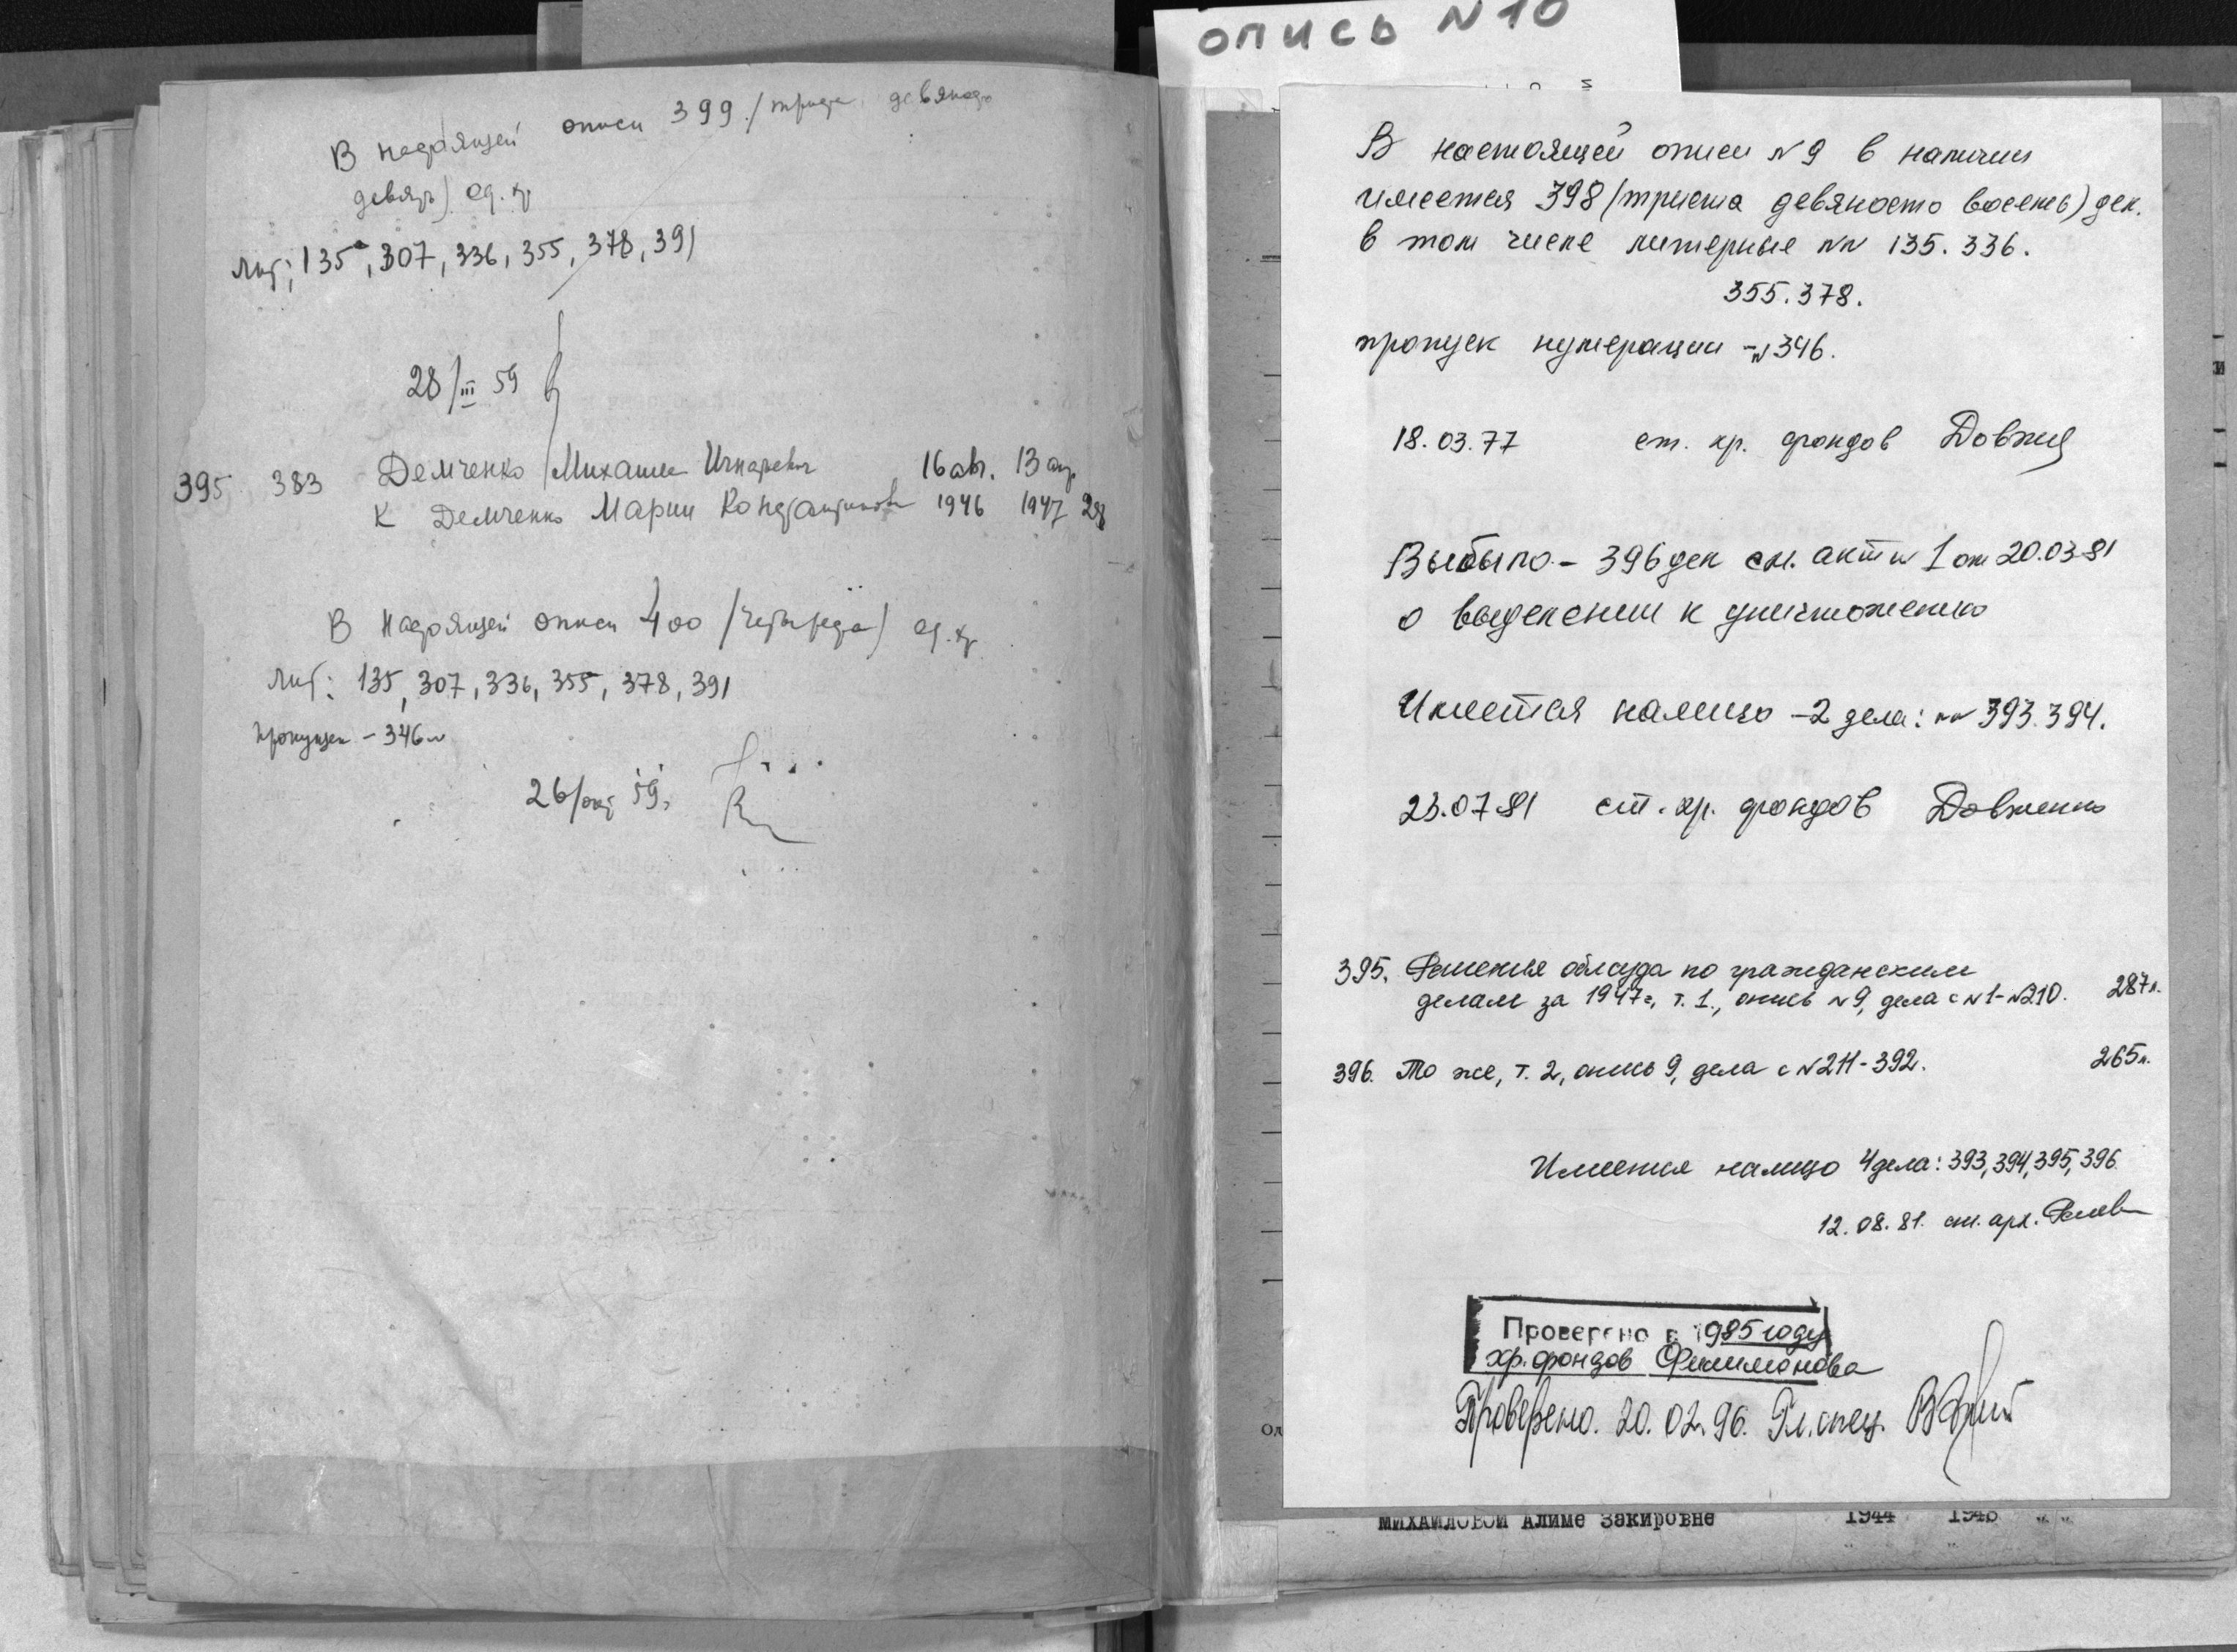 В настоящей описи 399 /триста девяносто
девять) ед. хр
Лит; 135а, 307, 336, 355, 378, 391
28/III 59
395 383 Демченко Михаила Игнатьевич 16 авг. 13 апр.
К Демченко Марии 1946 1947 28
В настоящей описи 400 /четыреста) ед. хр
Лит: 135, 307, 336, 355, 378, 391
Пропущен - 346
26/окт 59г.
ОПИСЬ N10
В настоящей описи N9 в наличии
имеется 398 (триста девяносто восемь) дел.
в том числе литерные NN 135. 336.
355. 378.
пропуск нумерации - N346.
18.03.77 ст. хр. фондов
Выбыло - 396 дел см. акт N 1 от 20.03.81
о выделении к уничтожению
Имеется налицо - 2 дела: NN 393. 394.
23.07.81 ст. хр. фондов Довженко
395. Решения облсуда по гражданским
делам за 1947г., т. 1., опись N9, дела с N1-N210. 287л.
396. То же, т. 2, опись 9, дела с N211-392. 265л.
Имеется налицо 4 дела: 393, 394, 395, 396
12.08.81. ст. арх.
Проверено в 1985 году
хр. фондов Филимонова
Проверено. 20.02.96. Гл. спец.
МИХАЙЛОВОЙ Алиме Закировне 1944 1945 " "